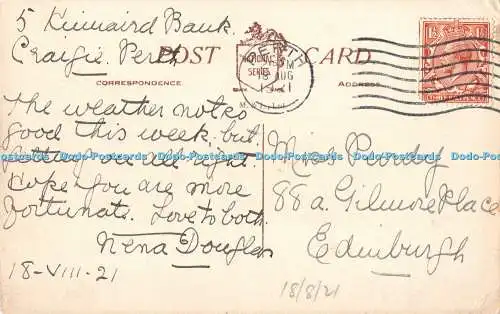 5 Kinnaird Bank.
Craigie. Perth
POST CARD
CORRESPONDENCE
ADDRESS
NATIONAL
SERIES
M. & L., Ltd.
PERTH
AUG
1½ 1½
The weather not so
good this week, but
you all right.
Hope you are more
fortunate. Love to both
Nena Douglas
18-VIII-21
Miss Purdy
88a Gilmore Place
Edinburgh
18/8/21
Dodo-Postcards Dodo-Postcards Dodo-Postcards Dodo-Postcards Dodo-Postcards Dodo-Postcards